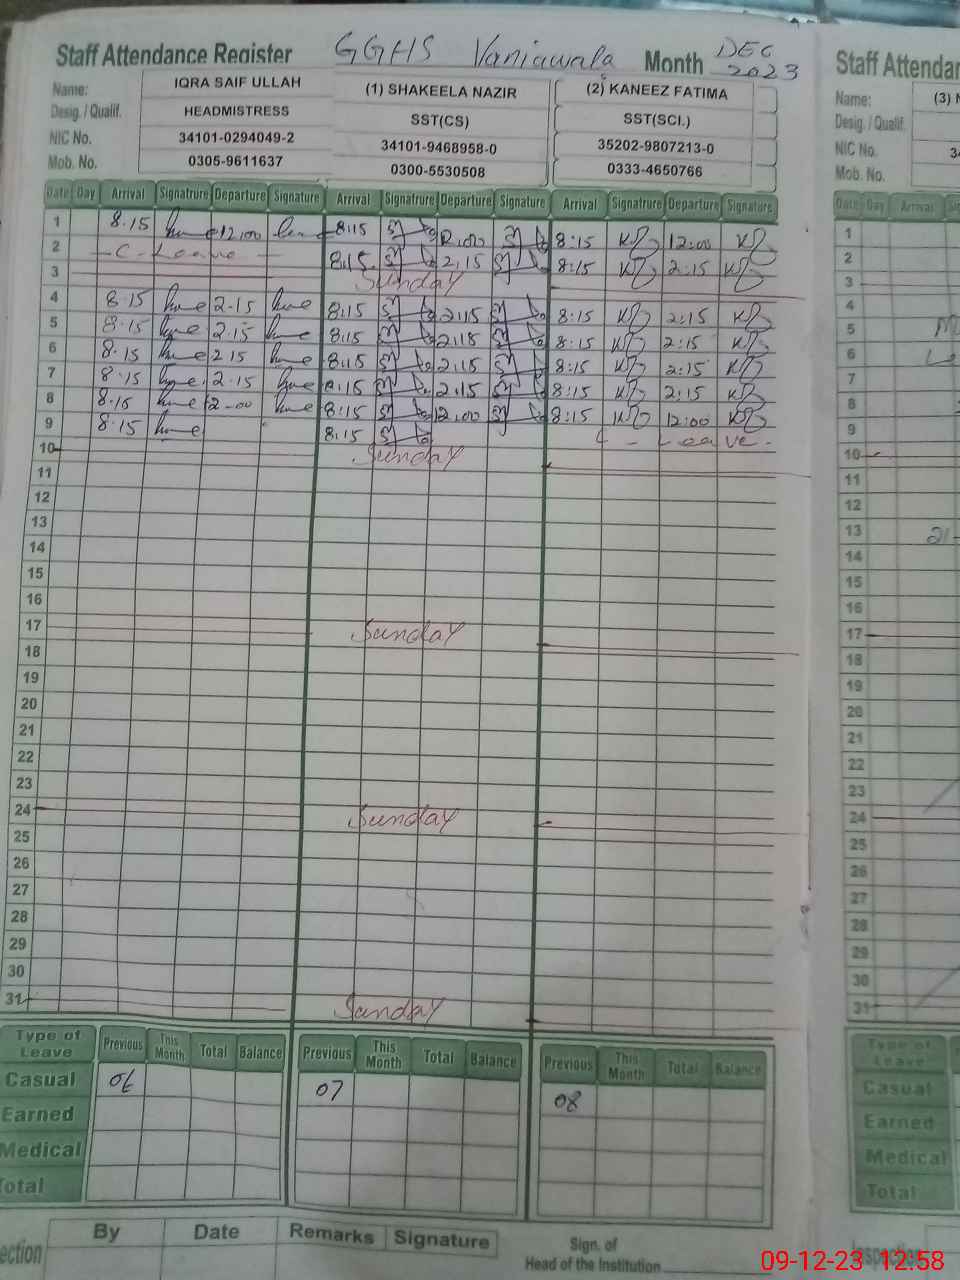 Staff Attendance Register GGHS Vaniawala Month DEC 2023
Staff Attendar
Name: IQRA SAIF ULLAH (1) SHAKEELA NAZIR (2) KANEEZ FATIMA
Name: (3)
Desig. / Qualif. HEADMISTRESS SST(CS) SST(SCI.)
Desig. / Qualif.
NIC No. 34101-0294049-2 34101-9468958-0 35202-9807213-0
NIC No.
Mob. No. 0305-9611637 0300-5530508 0333-4650766
Mob. No.
Date Day Arrival Signatrure Departure Signature Arrival Signatrure Departure Signature Arrival Signatrure Departure Signature
Date Day Arrival
1 8.15 12:00 8:15 12.00 8:15 12:00
2 -C-Leave- 8:15 2.15 8:15 2:15
3 Sunday
4 8.15 2.15 8:15 2:15 8:15 2:15
5 8.15 2.15 8:15 2:15 8:15 2:15
6 8.15 2.15 8:15 2.15 8:15 2:15
7 8.15 2.15 8:15 2.15 8:15 2:15
8 8.15 12.00 8:15 12.00 8:15 12:00
9 8.15 8:15 C - Leave -
10 Sunday
11
12
13
14
15
16
17 Sunday
18
19
20
21
22
23
24 Sunday
25
26
27
28
29
30
31 Sunday
1
2
3
4
5
6
7
8
9
10
11
12
13
14
15
16
17
18
19
20
21
22
23
24
25
26
27
28
29
30
31
Type of Leave Previous This Month Total Balance Previous This Month Total Balance Previous This Month Total Balance
Casual 06 07 08
Earned
Medical
Total
Type of Leave
Casual
Earned
Medical
Total
ection By Date Remarks Signature Sign. of Head of the Institution
Inspection
09-12-23 12:58